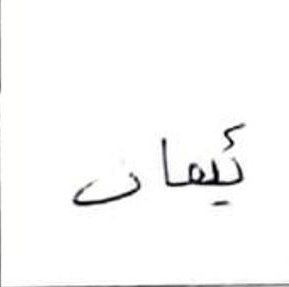 ئیمان